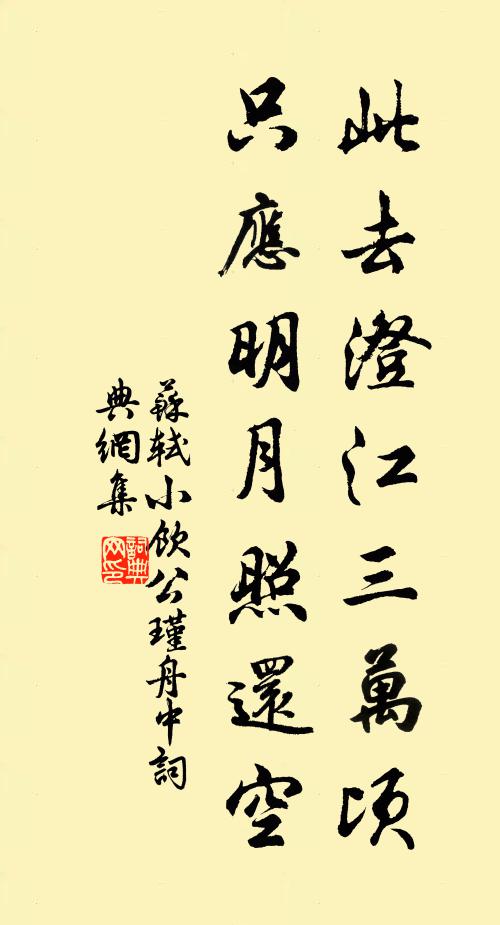 此去澄江三萬頃
只應明月照還空
蘇軾小飲公瑾舟中詞
典網集
詞典
网印